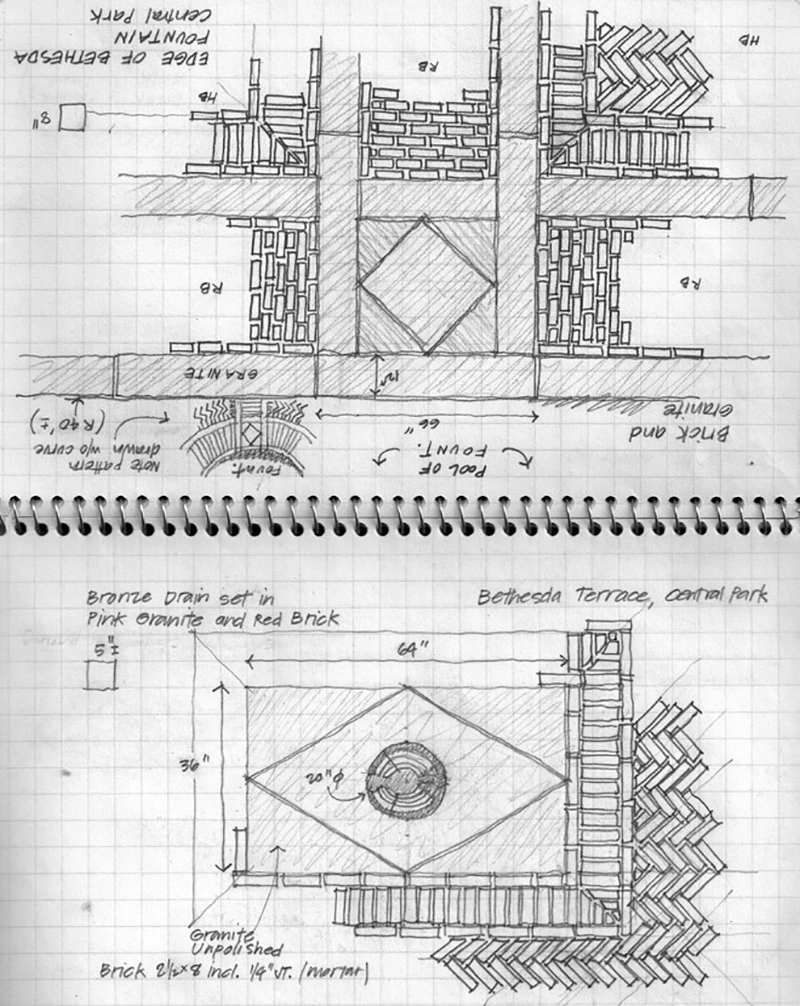 EDGE OF BETHESDA
FOUNTAIN
Central Park
8"
HB
RB
HB
RB
RB
GRANITE
12"
66"
Brick and
Granite
POOL OF
FOUNT.
Fount.
Note pattern
drawn w/o curve
(R 40'±)
Bronze Drain set in
Pink Granite and Red Brick
Bethesda Terrace, Central Park
5"±
64"
36"
20"φ
Granite
Unpolished
Brick 2½x8 incl. 1/4" JT. (mortar)